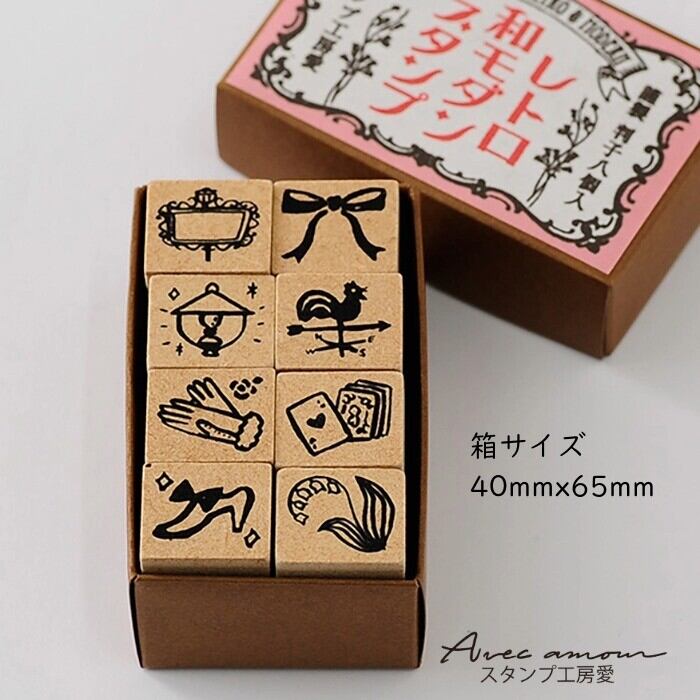 レトロ
和モダン
スタンプ
謹製 判子八個入
ンプ工房愛
箱サイズ
40mmx65mm
Avec amour
スタンプ工房愛